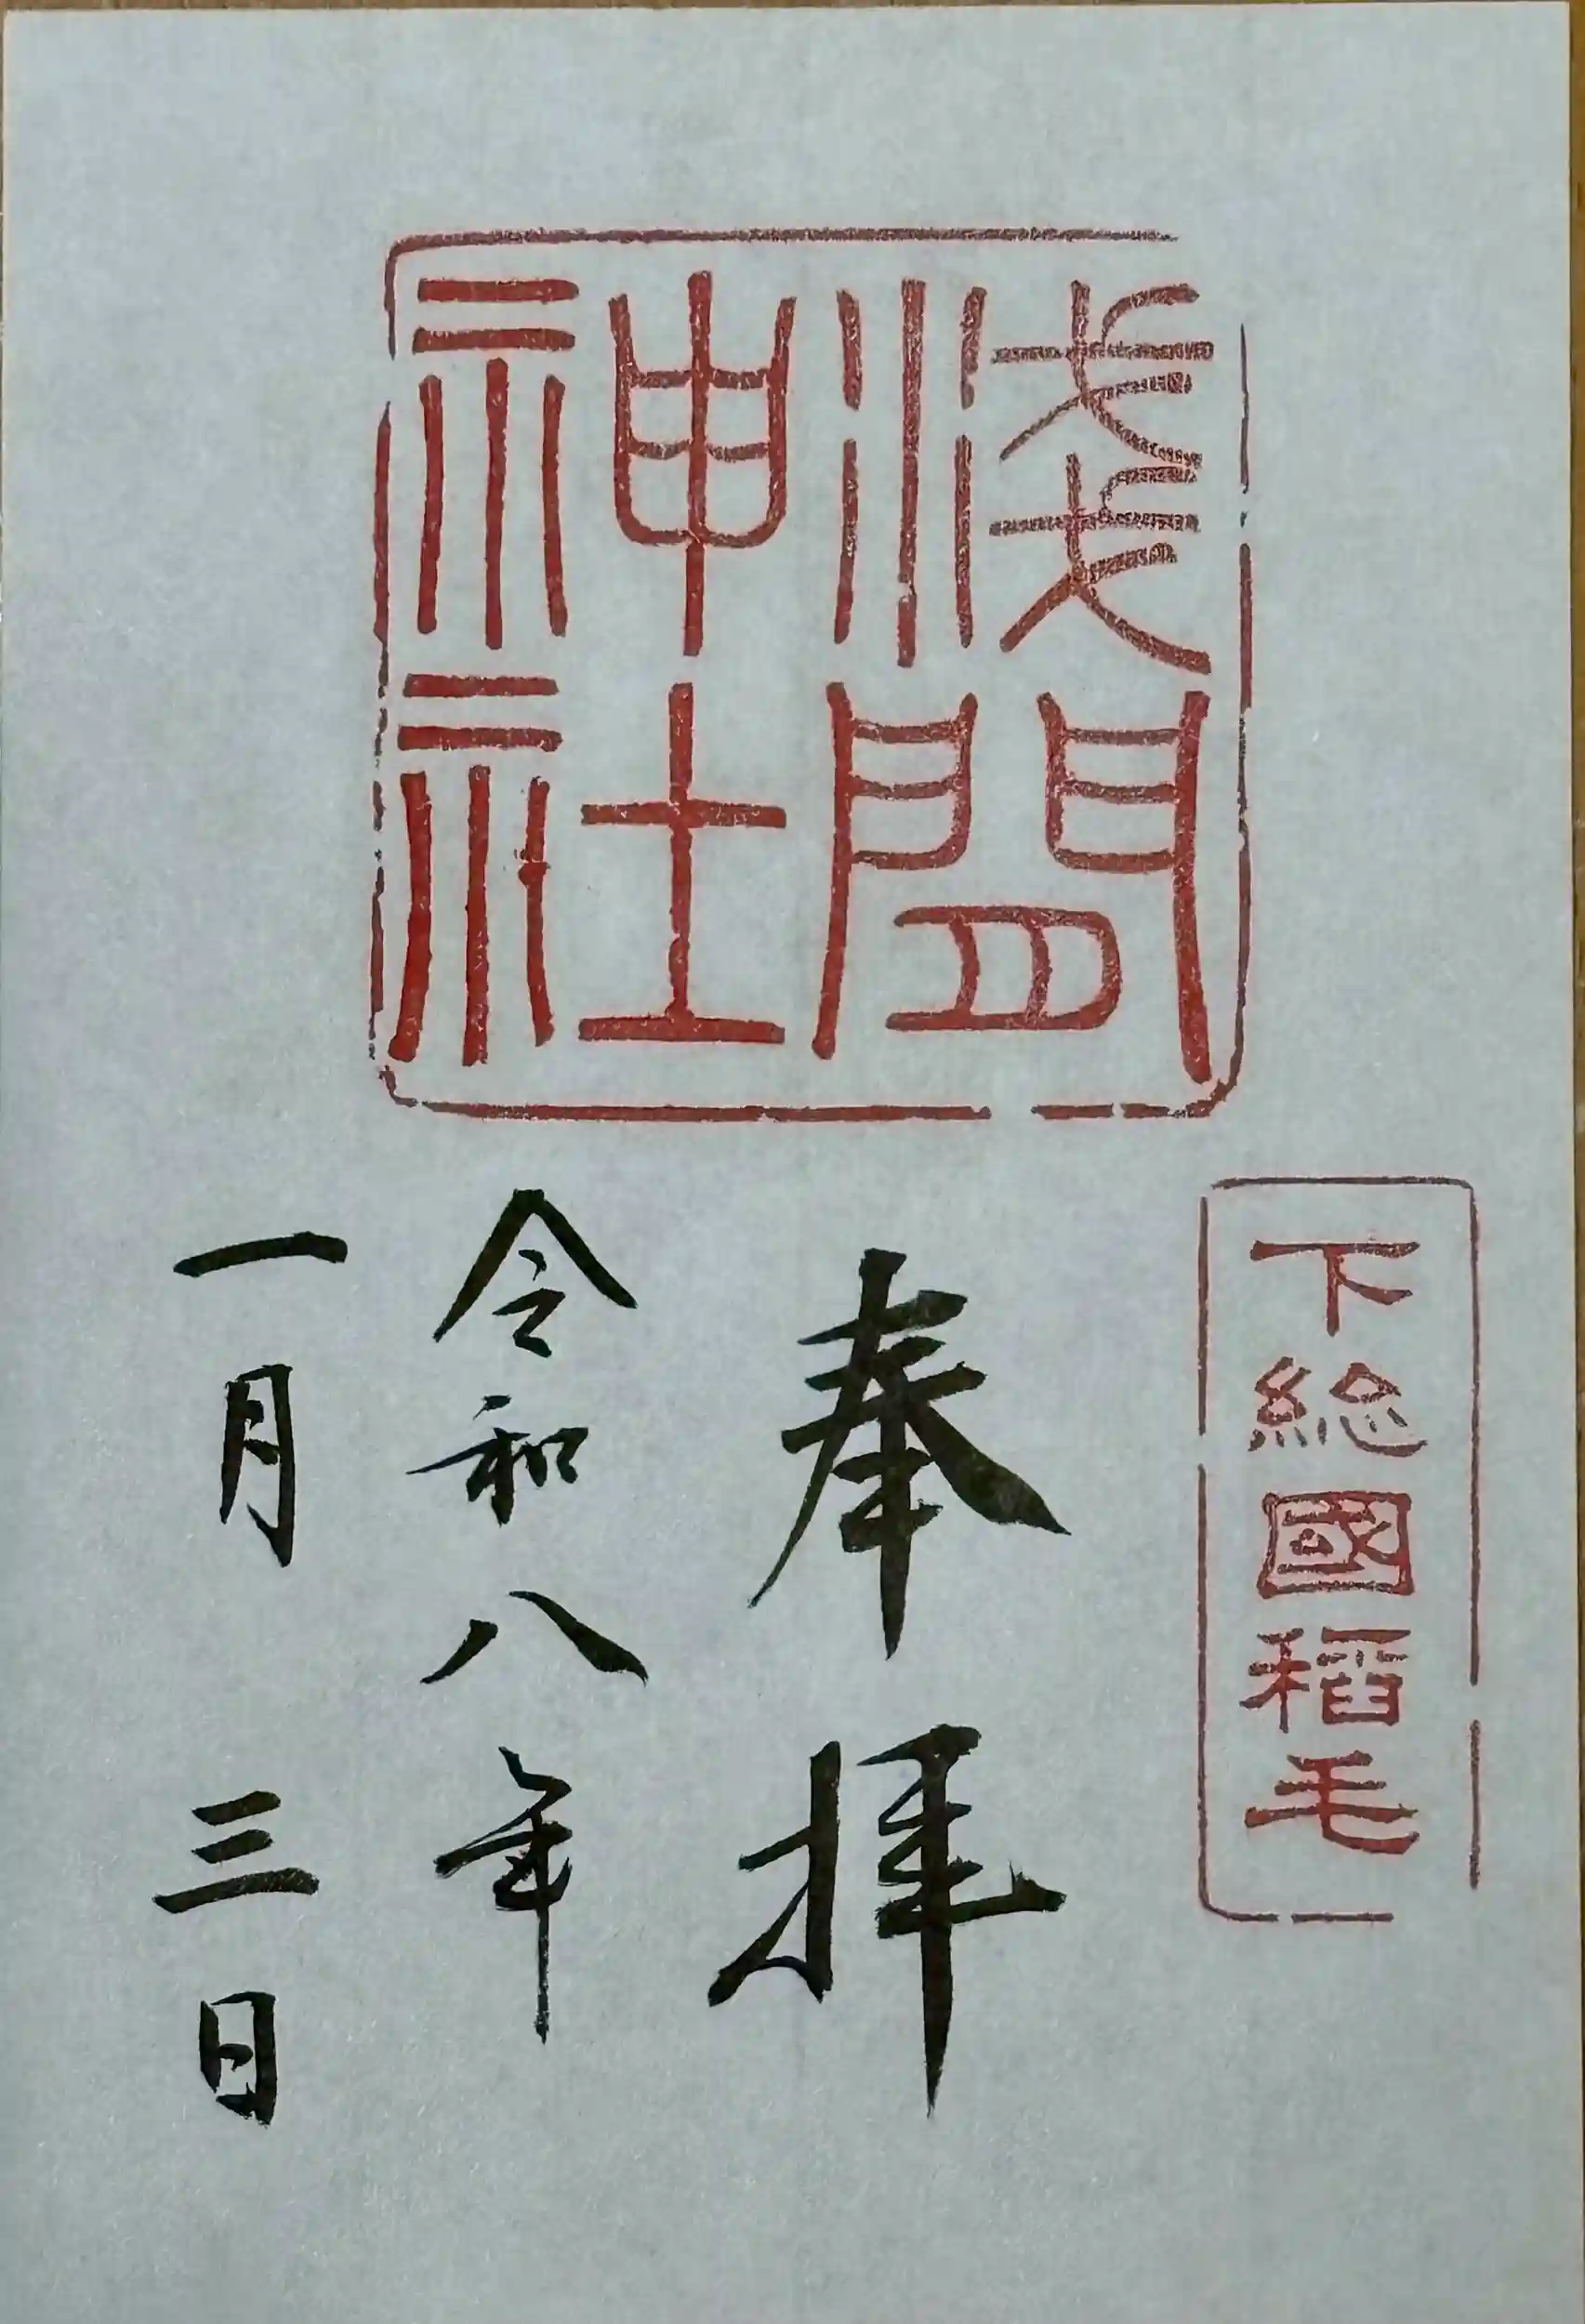 淺間
神社
下総國稻毛
奉拝
令和八年
一月三日